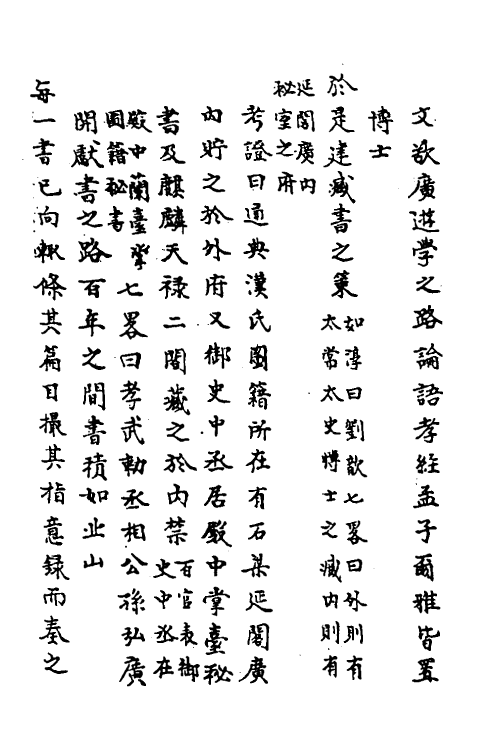 文欲廣遊學之路論語孝經孟子爾雅皆置
博士
於是建藏書之策如淳曰劉歆七畧曰外則有
太常太史博士之藏内則有
延閣廣内
秘室之府
考證曰通典漢氏圖籍所在有石渠延閣廣
内貯之於外府又御史中丞居殿中掌臺秘
書及麒麟天禄二閣藏之於内禁百官表御
史中丞在
殿中蘭臺掌
圖籍秘書
七畧曰孝武勅丞相公孫弘廣
開獻書之路百年之間書積如丘山
每一書已向輒條其篇目撮其指意録而奏之